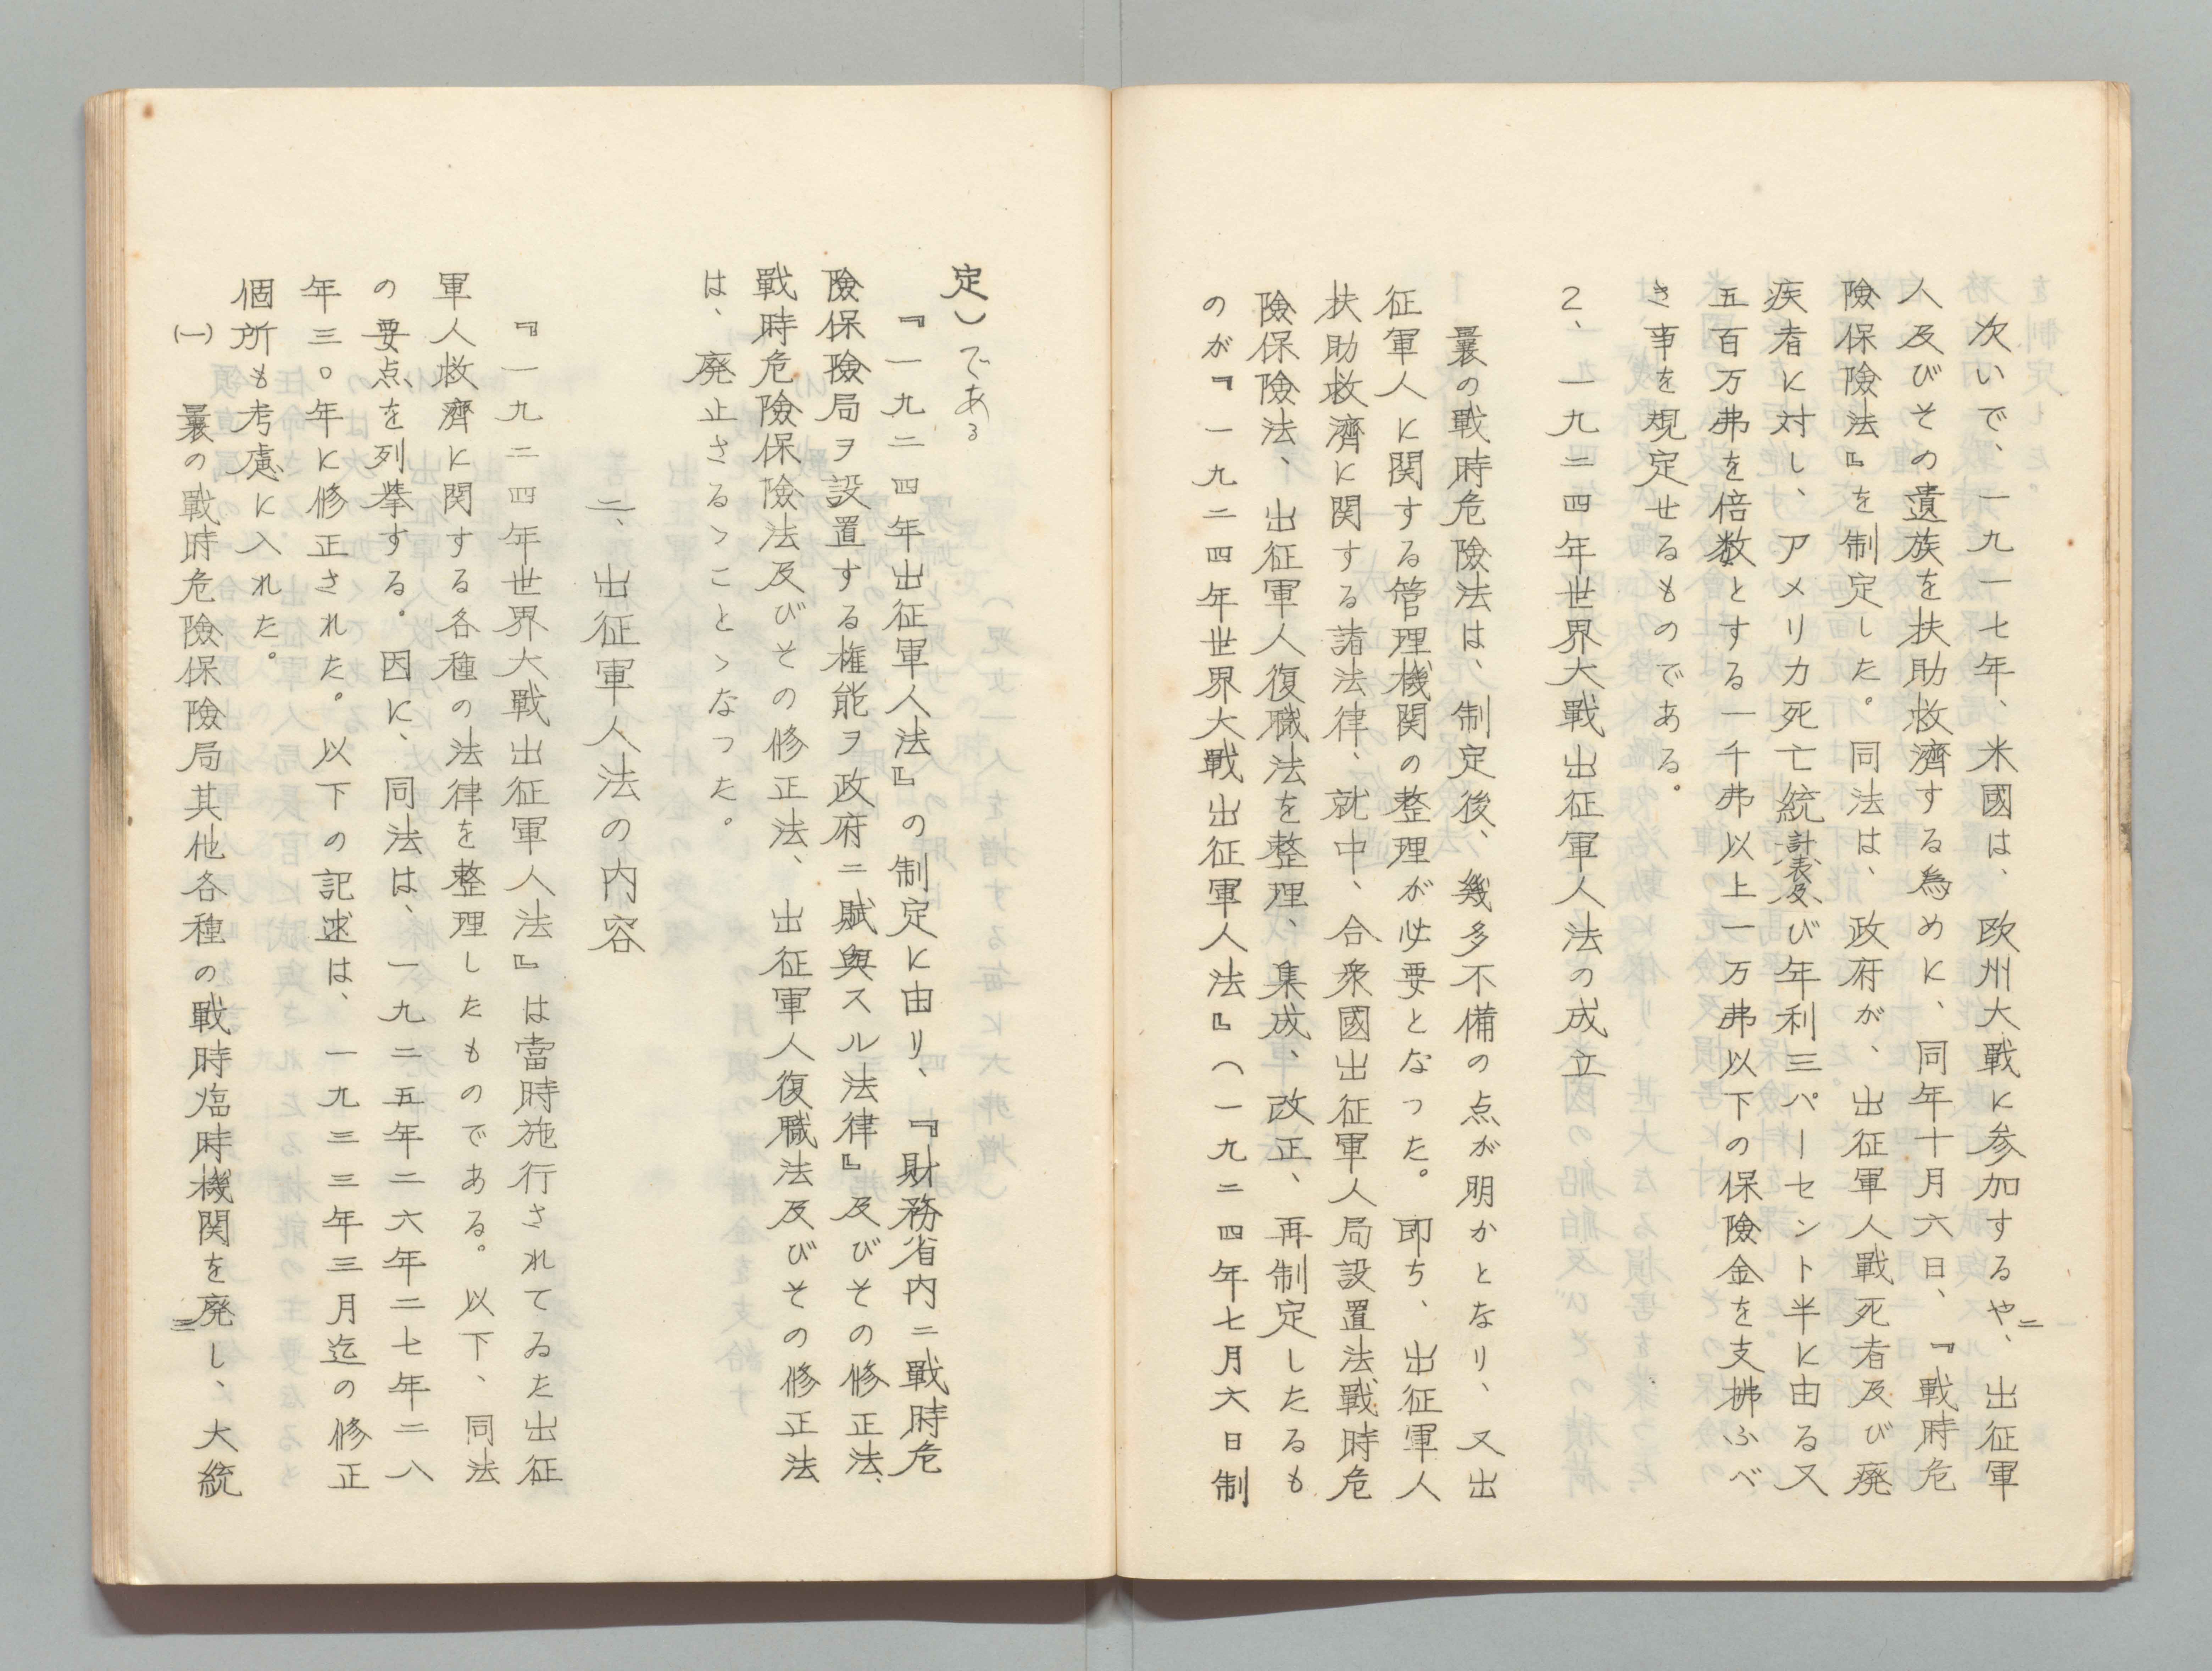 次いで、一九一七年、米國は、欧州大戰に参加するや、出征軍
人及びその遺族を扶助救濟する為めに、同年十月六日、『戰時危
險保險法』を制定した。同法は、政府が、出征軍人戰死者及び廃
疾者に対し、アメリカ死亡統計表及び年利三パーセント半に由る又
五百万弗を倍数とする一千弗以上一万弗以下の保險金を支拂ふべ
き事を規定せるものである。
2、一九二四年世界大戰出征軍人法の成立
曩の戰時危險法は、制定後、幾多不備の点が明かとなり、又出
征軍人に関する管理機関の整理が必要となつた。即ち、出征軍人
扶助救濟に関する諸法律、就中、合衆國出征軍人局設置法、戰時危
險保險法、出征軍人復職法を整理、集成、改正、再制定したるも
のが『一九二四年世界大戰出征軍人法』（一九二四年七月六日制
二
定）である
『一九二四年出征軍人法』の制定に由り、『財務省内ニ戰時危
險保險局ヲ設置する権能ヲ政府ニ賦與スル法律』及びその修正法、
戰時危險保險法及びその修正法、出征軍人復職法及びその修正法
は、廃止さるゝことゝなつた。
二、出征軍人法の内容
『一九二四年世界大戰出征軍人法』は當時施行されてゐた出征
軍人救濟に関する各種の法律を整理したものである。以下、同法
の要点を列挙する。因に、同法は、一九二五年二六年二七年二八
年三〇年に修正された。以下の記述は、一九三三年三月迄の修正
個所も考慮に入れた。
(一)　曩の戰時危險保險局其他各種の戰時臨時機関を廃し、大統
三